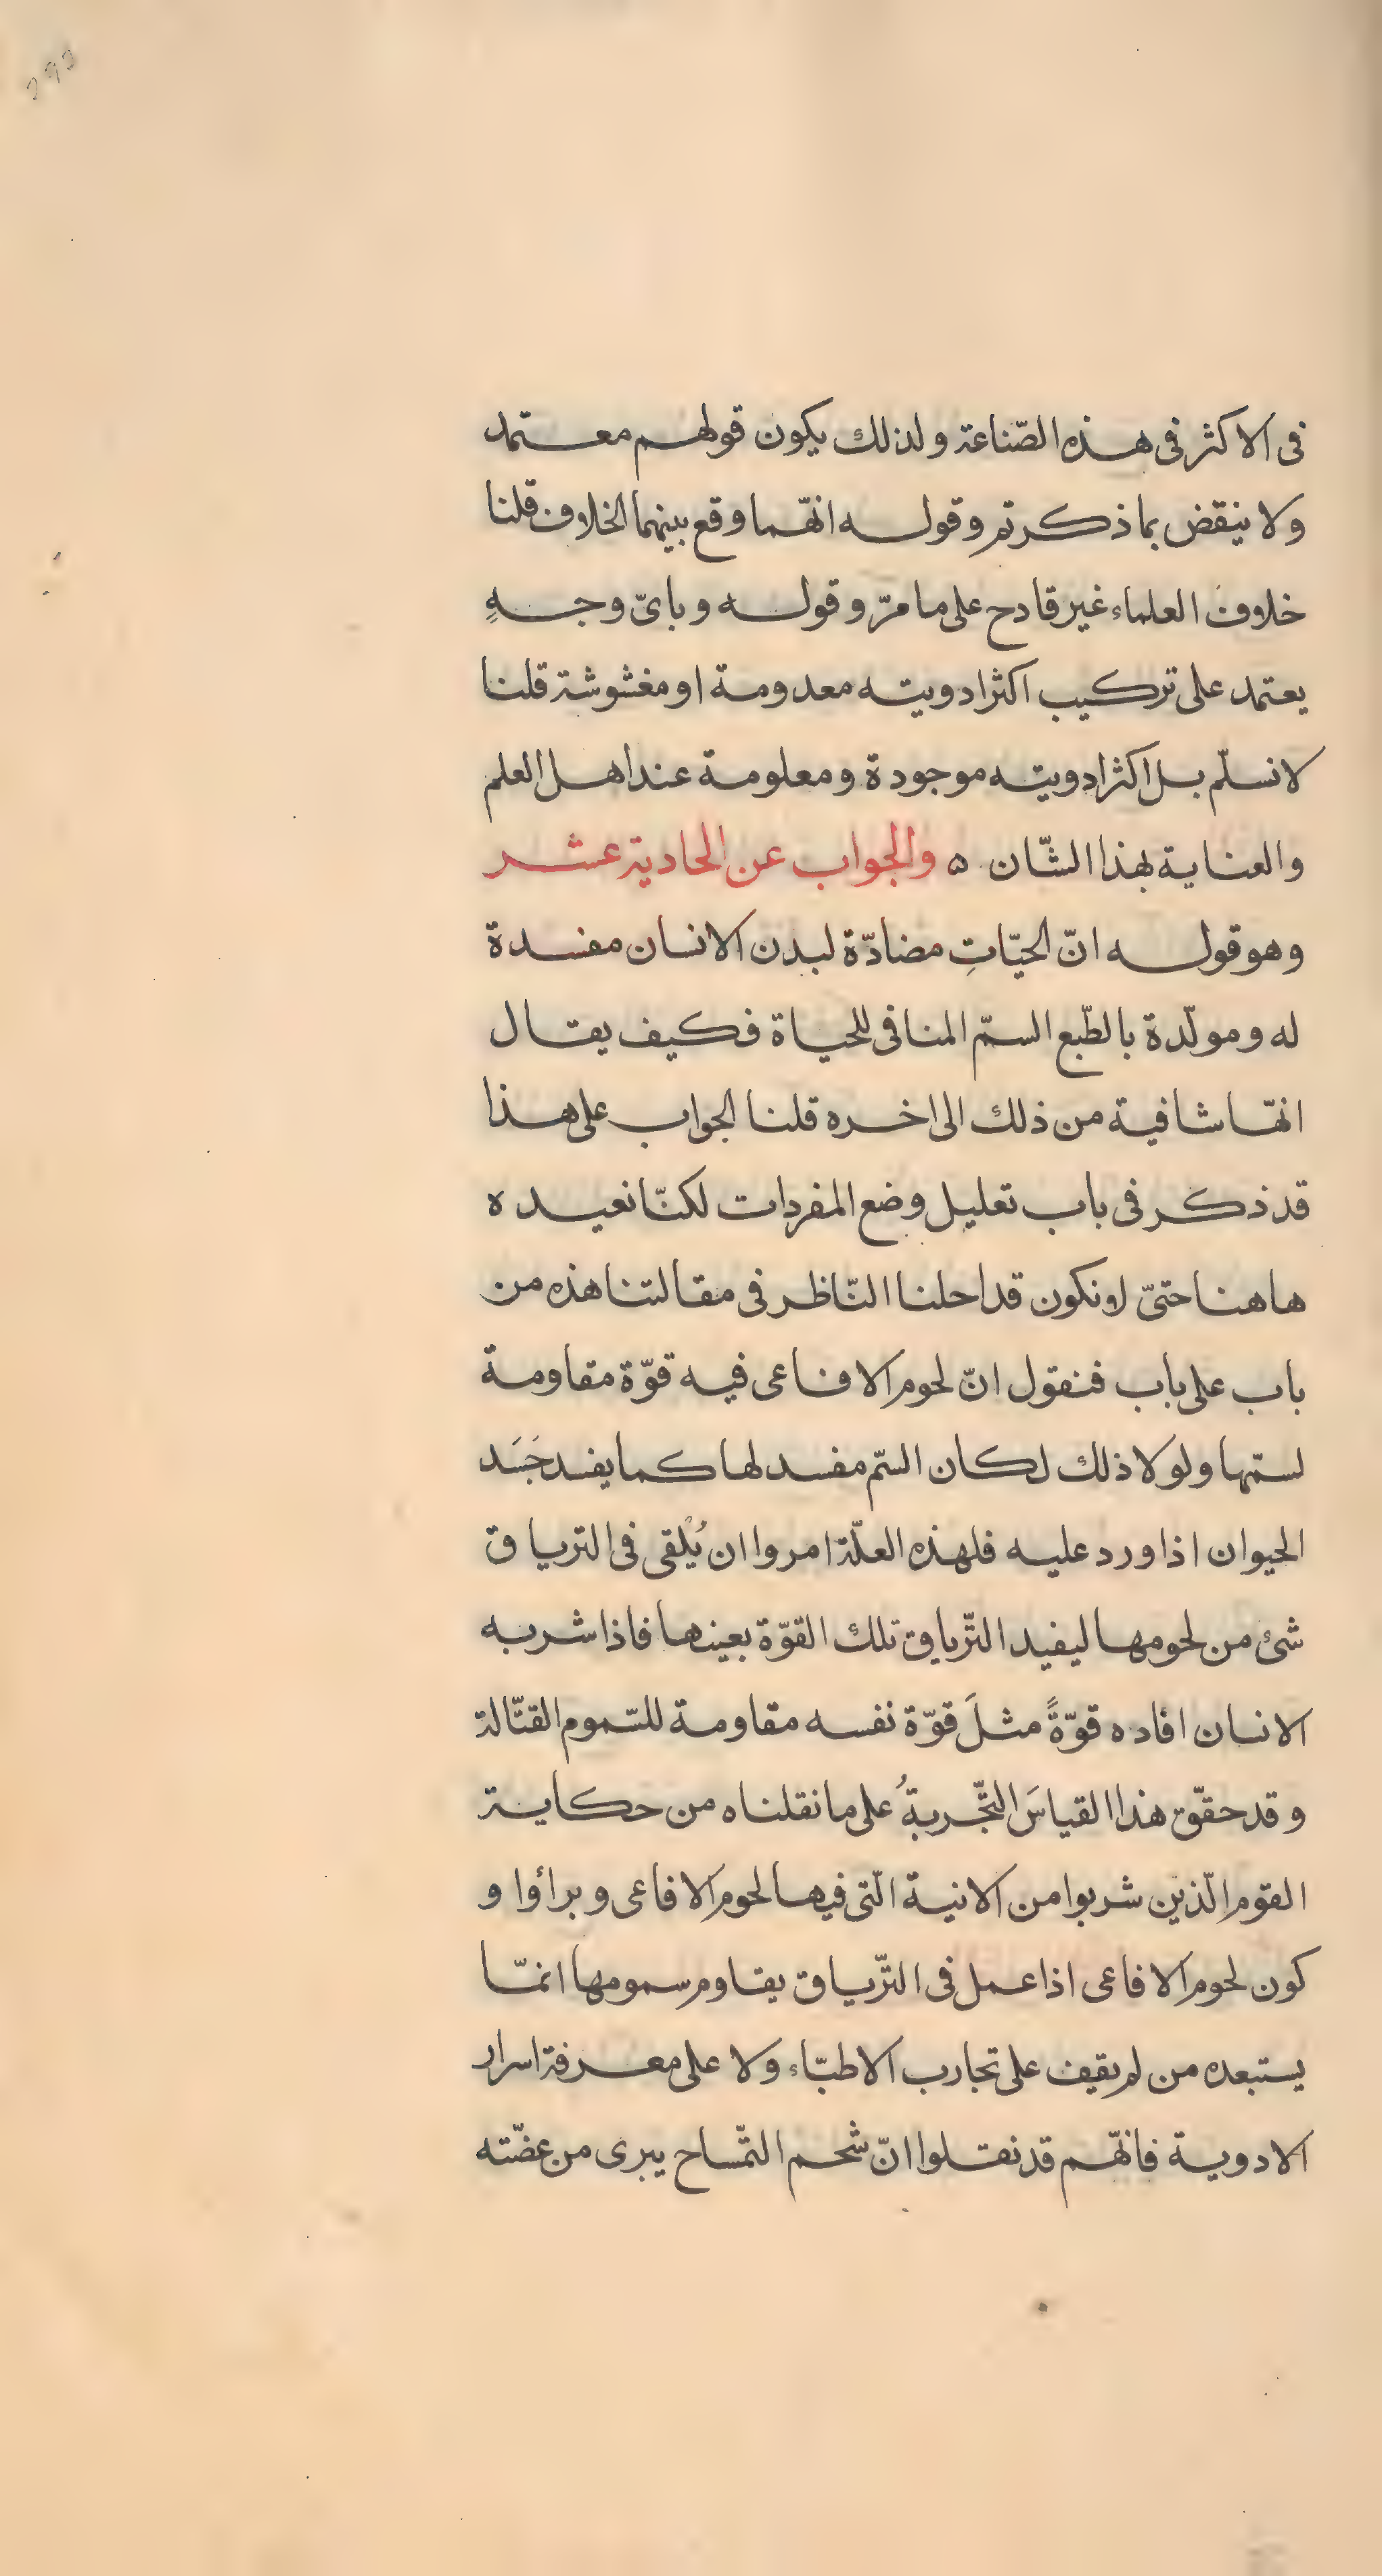 في الاكثر في هذه الصّناعة ولذلك يكون قولهم معتمد
ولا ينقض بما ذكرتم وقوله انّهما وقع بينهما الخلاف قلنا
خلاف العلماء غير قادح على ما مرّ وقوله وبايّ وجهٍ
يعتمد على تركيب اكثر ادويته معدومة او مغشوشة قلنا
لا نسلّم بل اكثر ادويته موجودة ومعلومة عند اهل العلم
والعناية بهذا الشّان ه والجواب عن الحادية عشر
وهو قوله انّ الحيّاتِ مضادّة لبدن الانسان مفسدة
له ومولّدة بالطّبع السمّ المنافي للحياة فكيف يقال
انّها شافية من ذلك الى اخره قلنا الجواب على هذا
قد ذكر في باب تعليل وضع المفردات لكنّا نعيده
هاهنا حتىّ لا نكون قد احلنا النّاظر في مقالتنا هذه من
باب على باب فنقول انّ لحوم الافاعى فيه قوّة مقاومة
لسمّها ولولا ذلك لكان السّم مفسد لها كما يفسد جَسَد
الحيوان اذا ورد عليه فلهذه العلّة امروا ان يُلْقى في الترياق
شئ من لحومها ليفيد التّرياق تلك القوّة بعينها فاذا شربه
الانسان افاده قوّةً مثلَ قوّة نفسه مقاومة للسّموم القتّالة
وقد حقّق هذا القياسَ التّجربةُ على ما نقلناه من حكاية
القوم الّذين شربوا من الانية الّتى فيها لحوم الافاعى وبراؤا و
كون لحوم الافاعى اذا عمل في التّرياق يقاوم سمومها انمّا
يستبعده من لم يقيف على تجارب الاطبّاء ولا على معرفة اسرار
الادوية فانّهم قد نقلوا انّ شحم التّمساح يبرى من عضّته